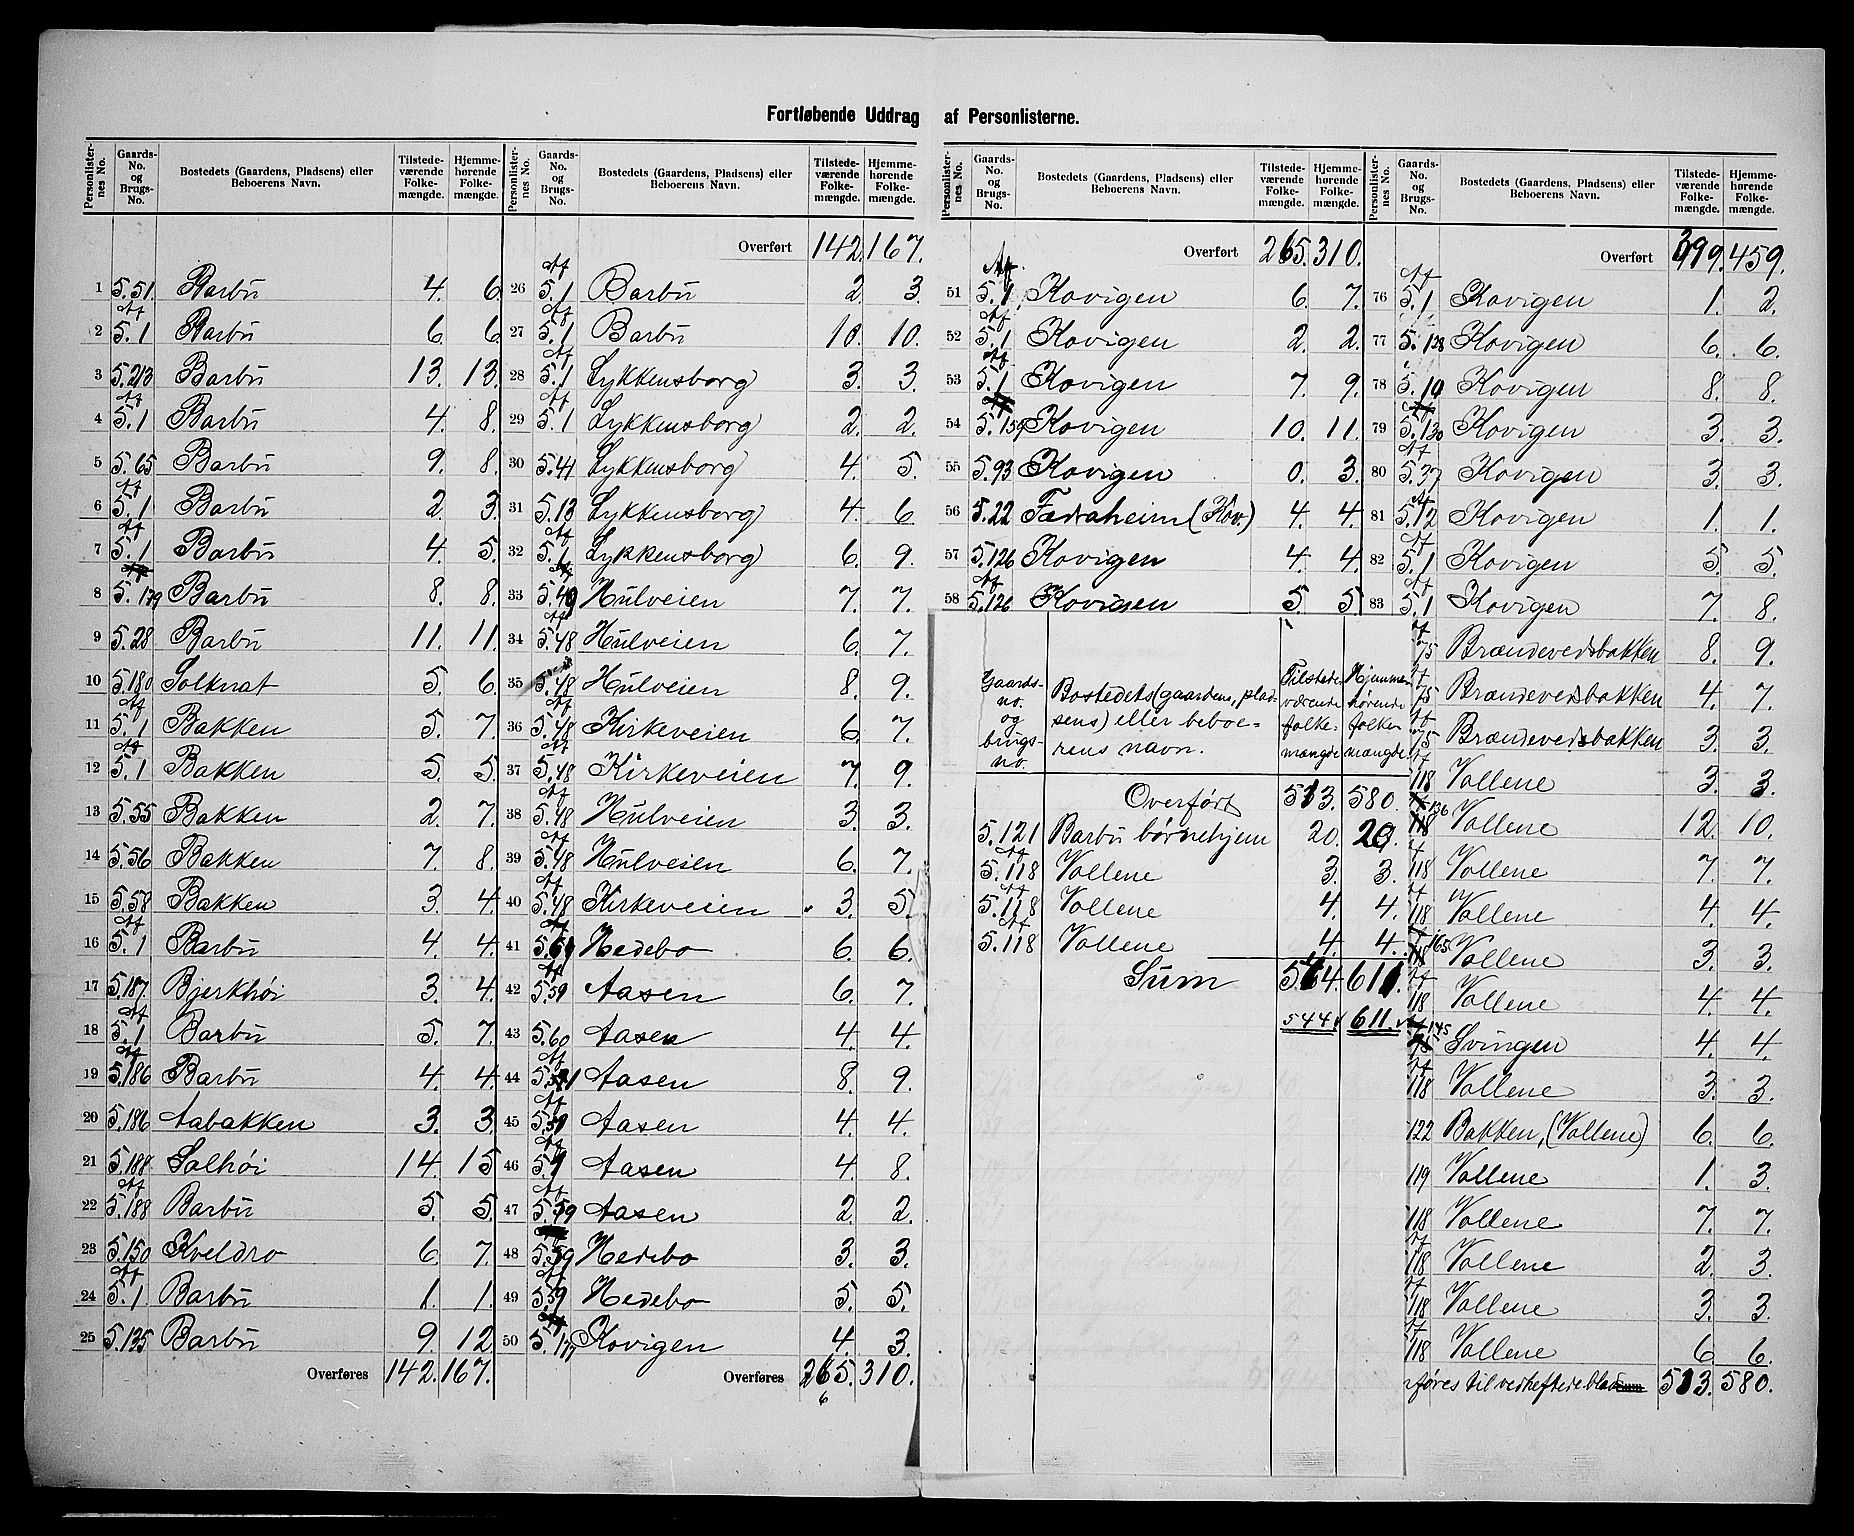 Fortløbende Uddrag af Personlisterne.
Personlisternes No. Gaards-No. og Brugs-No. Bostedets (Gaardens, Pladsens) eller Beboerens Navn. Tilstedeværende Folkemængde. Hjemmehørende Folkemængde.
1 5.51. Barbu 4. 6.
2 Af 5.1 Barbu 6. 6.
3 5.213 Barbu 13. 13.
4 Af 5.1 Barbu 4. 8.
5 5.65 Barbu 9. 8.
6 Af 5.1 Barbu 2. 3.
7 Af 5.1 Barbu 4. 5.
8 5.179 Barbu 8. 8.
9 5.28 Barbu 11. 11.
10 5.180 Solknat 5. 6.
11 Af 5.1 Bakken 5. 7.
12 Af 5.1 Bakken 5. 5.
13 5.55 Bakken 2. 7.
14 5.56 Bakken 7. 8.
15 5.58 Bakken 3. 4.
16 Af 5.1 Barbu 4. 4.
17 5.187 Bjerkhöi 3. 4.
18 Af 5.1 Barbu 5. 7.
19 Af 5.186 Barbu 4. 4.
20 5.186 Aabakken 3. 3.
21 5.188 Solhöi 14. 15
22 Af 5.188 Barbu 5. 5.
23 5.150 Kveldro 6. 7.
24 Af 5.1. Barbu 1. 1.
25 5.135 Barbu 9. 12
Overføres 142. 167.
Personlisternes No. Gaards-No. og Brugs-No. Bostedets (Gaardens, Pladsens) eller Beboerens Navn. Tilstedeværende Folkemængde. Hjemmehørende Folkemængde.
Overført 142. 167.
26 Af 5.1 Barbu 2. 3.
27 Af 5.1 Barbu 10. 10.
28 Af 5.1 Lykkensborg 3. 3.
29 Af 5.1 Lykkensborg 2. 2.
30 5.41 Lykkensborg 4. 5.
31 5.13 Lykkensborg 4. 6
32 Af 5.1 Lykkensborg 6. 9.
33 5.49 Hulveien 7. 7.
34 Af 5.48 Hulveien 6. 7.
35 5.48 Hulveien 8. 9.
36 Af 5.48 Kirkeveien 6. 7.
37 Af 5.48 Kirkeveien 7. 9.
38 Af 5.48 Hulveien 3. 3.
39 Af 5.48 Hulveien 6. 7.
40 Af 5.48 Kirkeveien 3. 5.
41 Hedebo 6. 6.
42 Af 5.59 Aasen 6. 7.
43 5.60 Aasen 4. 4.
44 Af Aasen 8. 9.
45 Af 5.59 Aasen 4. 4.
46 Af Aasen 4. 8.
47 Af 5.59 Aasen 2. 2.
48 5.59 Hedebo 3. 3.
49 Af 5.59 Hedebo 5. 5.
50 5.177 Kovigen 4. 3.
Overføres 265. 310.
6
Personlisternes No. Gaards-No. og Brugs-No. Bostedets (Gaardens, Pladsens) eller Beboerens Navn. Tilstedeværende Folkemængde. Hjemmehørende Folkemængde.
Overført 265. 310.
51 Af 5.1 Kovigen 6. 7.
52 Af 5.1 Kovigen 2. 2.
53 Af 5.1 Kovigen 7. 9.
54 5.159 Kovigen 10. 11.
55 5.93 Kovigen 0. 3.
56 5.22 Fedraheim (Kov.) 4. 4.
57 5.126 Kovigen 4. 4.
58 Af 5.126 Kovigen 5. 5.
Gaards-no. og brugs-no. Bostedets (gaardens, pladsens) eller beboerens navn. Tilstedeværende folkemængde Hjemmehørende folkemængde.
Overført 513. 580.
5.121 Barbu børnehjem 20. 20.
Af 5.118 Vollene 3. 3.
Af 5.118 Vollene 4. 4.
Af 5.118 Vollene 4. 4.
Sum 544. 611.
544 611.
Personlisternes No. Gaards-No. og Brugs-No. Bostedets (Gaardens, Pladsens) eller Beboerens Navn. Tilstedeværende Folkemængde. Hjemmehørende Folkemængde.
Overført 399. 459.
76 Af 5.1 Kovigen 1. 2.
77 5.128 Kovigen 6. 6.
78 5.10 Kovigen 8. 8.
79 5.130 Kovigen 3. 3.
80 Af 5.37 Kovigen 3. 3.
81 5.12 Kovigen 1. 1.
82 Af 5.1 Kovigen 5. 5.
83 Af 5.1 Kovigen 7. 8.
Af 75 Brændevedsbakken 8. 9.
Af 75 Brændevedsbakken 4. 7.
Af 75 Brændevedsbakken 3. 3.
Af 118 Vollene 3. 3.
136 Vollene 12. 10.
118 Vollene 7. 7.
118 Vollene 4. 4.
165 Vollene 3. 3.
118 Vollene 4. 4.
145 Svingen 4. 4.
Af 118 Vollene 3. 3.
122 Bakken, (Vollene) 6. 6.
119 Vollene 1. 3.
118 Vollene 7. 7.
Af 118 Vollene 2. 3.
Af 118 Vollene 3. 3.
Af 118 Vollene 6. 6.
føres til vedheftede blad 513. 580.